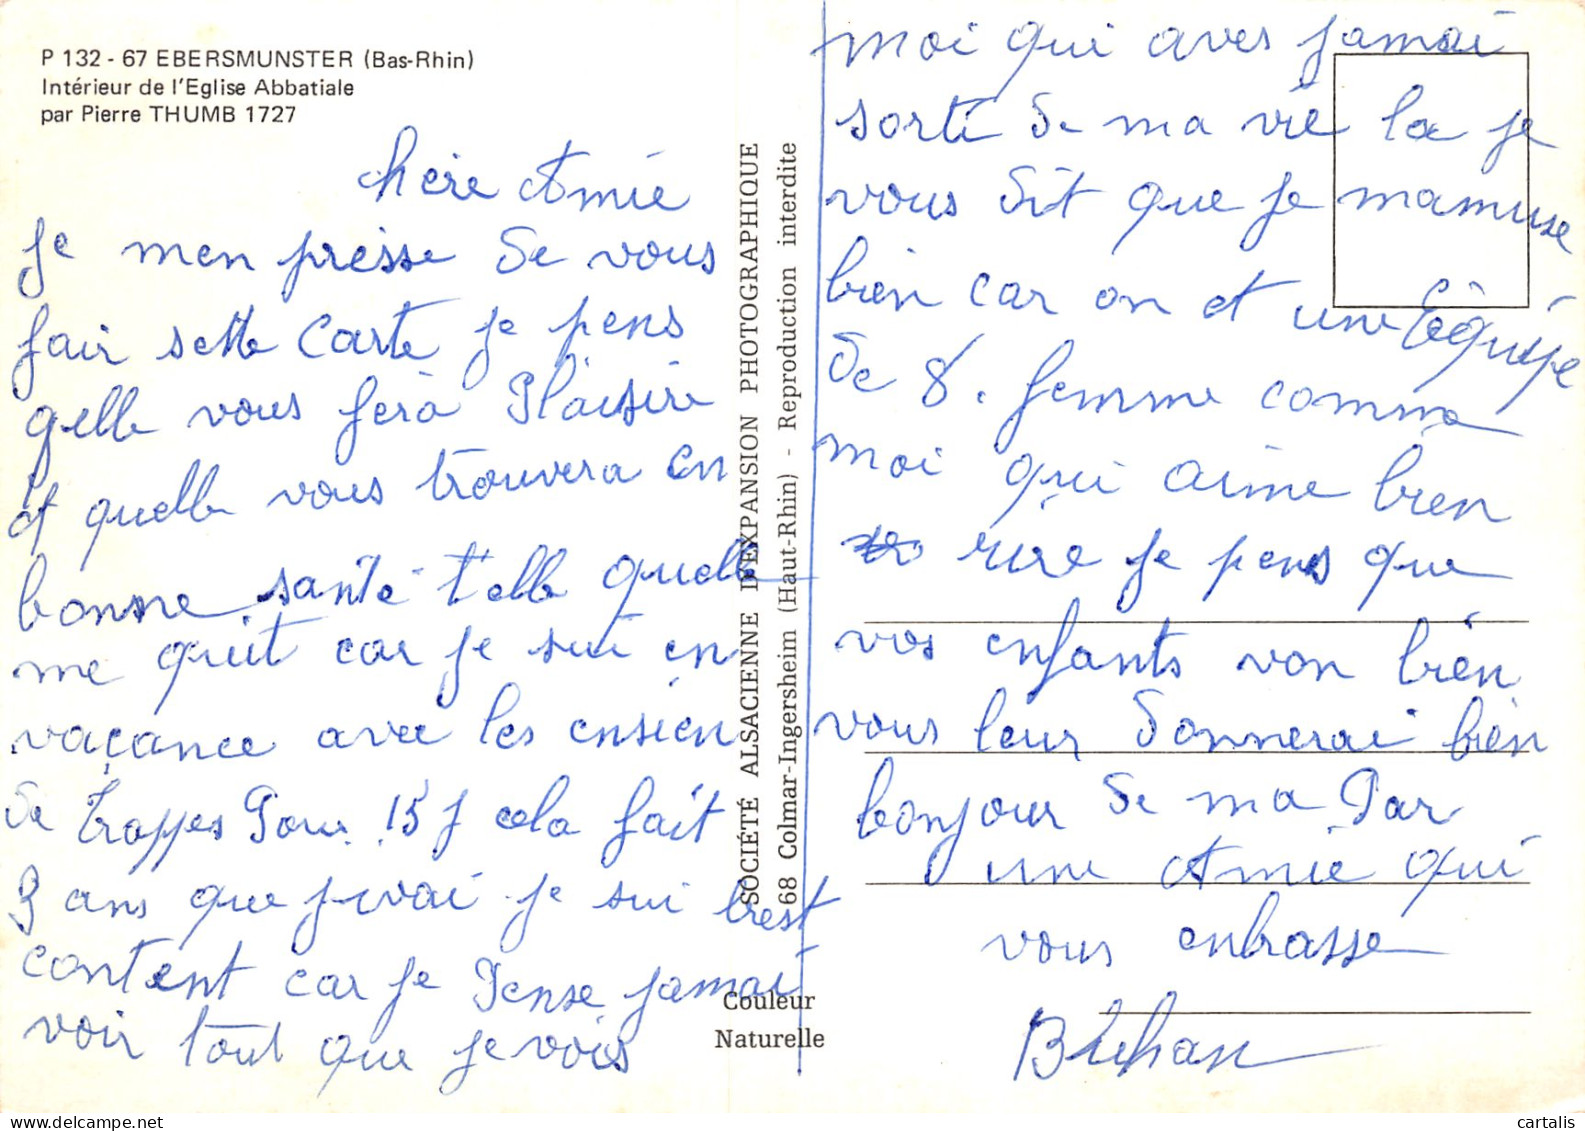 P 132 - 67 EBERSMUNSTER (Bas-Rhin)
Intérieur de l'Eglise Abbatiale
par Pierre THUMB 1727
chère Amie
je men presse de vous
fair sette Carte je pens
qelle vous fera Plaisire
et quelle vous trouvera en
bonne santé t'elle quelle
me quit car je sui en
vaçance avec les ensien
de trappes Pour 15 j cela fait
3 ans que j-vai je sui trest
content car je Pense jamai
voir tout que je vois
SOCIÉTÉ ALSACIENNE D'EXPANSION PHOTOGRAPHIQUE
68 Colmar-Ingersheim (Haut-Rhin) - Reproduction interdite
Couleur
Naturelle
moi qui aves jamai
sorti de ma vie la je
vous dit que je mamuse
bien car on et une Equipe
de 8. femme comme
moi qui aime bien
rire je pens que
vos enfants von bien
vous leur donnerai bien
bonjour de ma Par
une Amie qui
vous enbrasse
cartalis.com